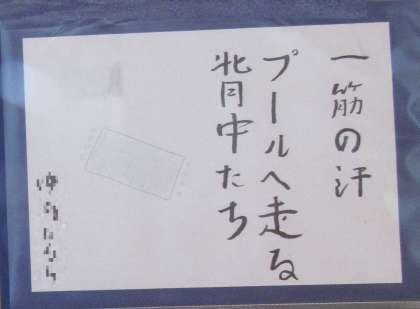 一筋の汗
プールへ走る
背中たち